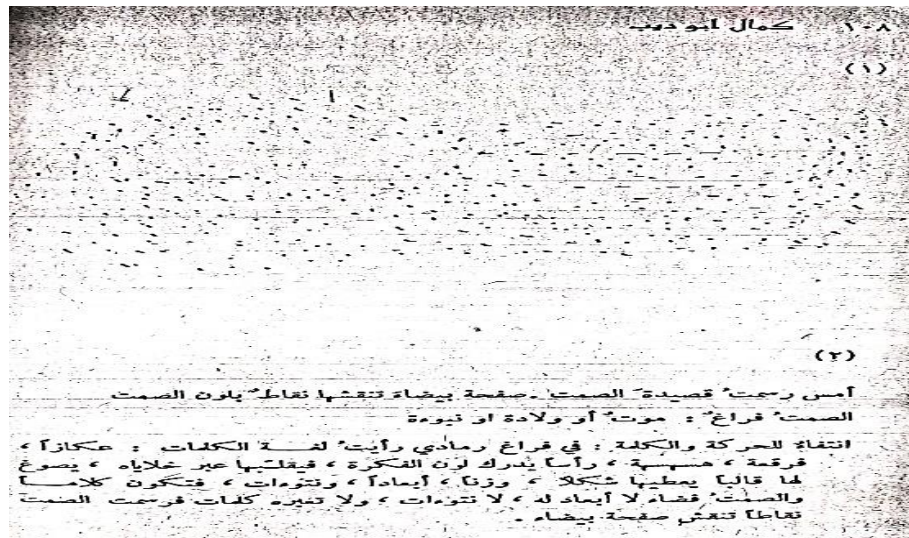 ١٠٨ كمال ابو ديب
(١)
(٢)
أمس رسمتُ قصيدةَ الصمت . صفحة بيضاء تنقشها نقاطٌ بلون الصمت
الصمتُ فراغٌ : موتٌ أو ولادة او نبوءة
انتفاءٌ للحركة والكلمة : في فراغ رمادي رأيتُ لغة الكلمات : عكازاً ،
فرقعة ، هسهسة ، رأساً يدرك لون الفكرة ، فيقلبها عبر خلاياه ، يصوغ
لها قالباً يعطيها شكلا ، وزناً ، أبعاداً ، ونتوءات ، فتكون كلاماً
والصمتُ فضاء لا أبعاد له ، لا نتوءات ، ولا تغيره كلمات فرسمت الصمت
نقاطاً تنقش صفحة بيضاء .